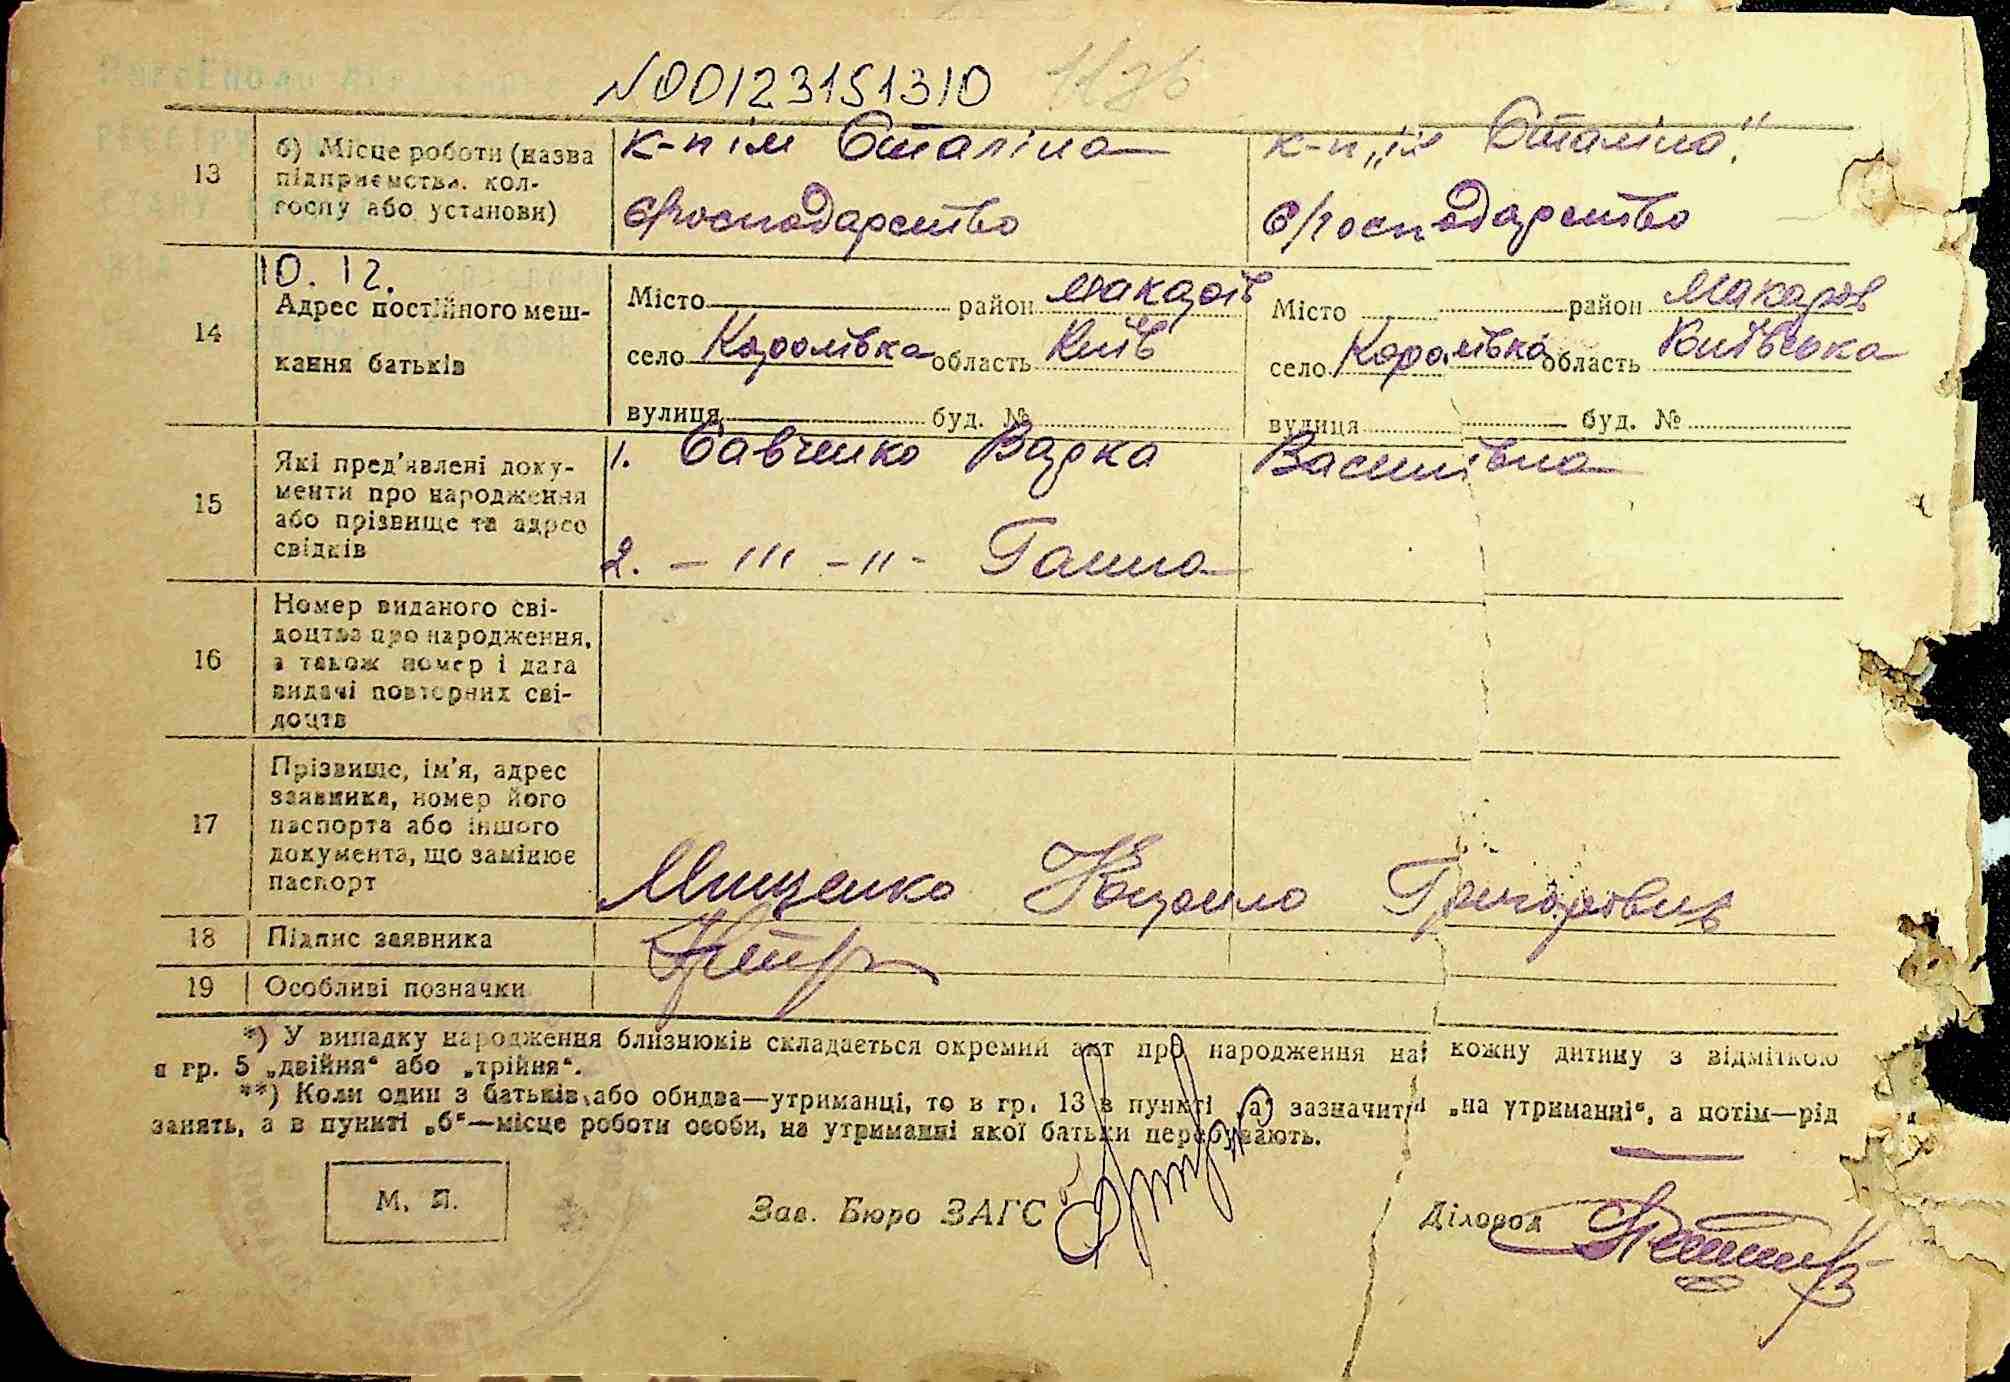 N00123151310
13
б) Місце роботи (назва підприємства, колгоспу або установи)
к-п ім Сталіна
с/господарство
к-п „ім Сталіна"
с/господарство
10.12.
14
Адрес постійного мешкання батьків
Місто район Макарів
село Королівка область Київ
вулиця буд. №
Місто район Макаров
село Королівка область Київська
вулиця буд. №
15
Які пред'явлені документи про народження або прізвище та адрес свідків
1. Савченко Варка Василівна
2. – ''' – '' - Ганна
16
Номер виданого свідоцтва про народження, а також номер і дата видачі повторних свідоцтв
17
Прізвище, ім'я, адрес заявника, номер його паспорта або іншого документа, що замінює паспорт
Мищенко Кирило Григорович
18
Підпис заявника
19
Особливі позначки
*) У випадку народження близнюків складається окремий акт про народження на кожну дитину з відміткою
в гр. 5 „двійня“ або „трійня“.
**) Коли один з батьків або обидва—утриманці, то в гр. 13 в пункті „а“ зазначити „на утриманні“, а потім—рід
занять, а в пункті „б“—місце роботи особи, на утриманні якої батьки перебувають.
М. П.
Зав. Бюро ЗАГС
Діловод